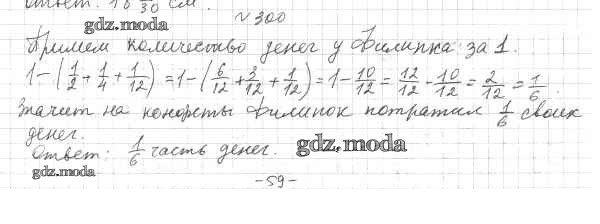 Ответ: 18 9/30 см.
gdz.moda
№300
Примем количество денег у Филипка за 1.
1-(1/2+1/4+1/12)=1-(6/12+3/12+1/12)=1-10/12=12/12-10/12=2/12=1/6.
Значит на конфеты Филипок потратил 1/6 своих
денег.
Ответ: 1/6 часть денег.
gdz.moda
gdz.moda
-59-